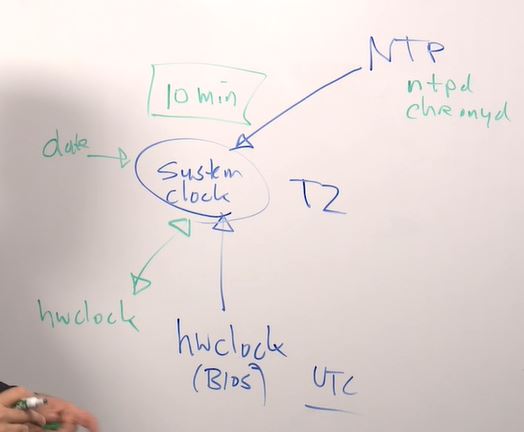 NTP
ntpd
chronyd
10 min
date
System
clock
TZ
hwclock
hwclock
(BIOS)
UTC